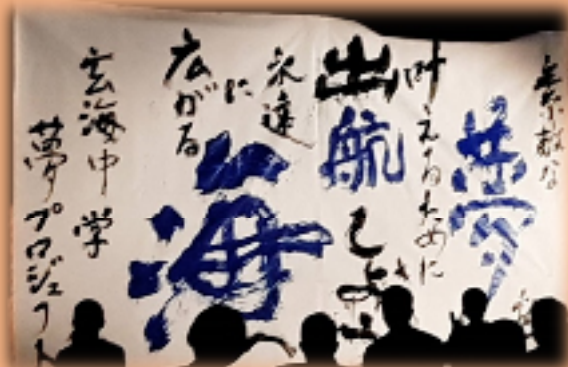 素敵な
夢を
叶えるために
出航しよう
永遠に
広がる
海
玄海中学
夢プロジェクト